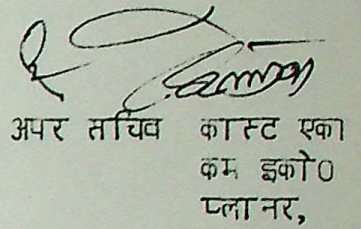 अपर सचिव कास्ट एका
कम इको0
प्लानर,